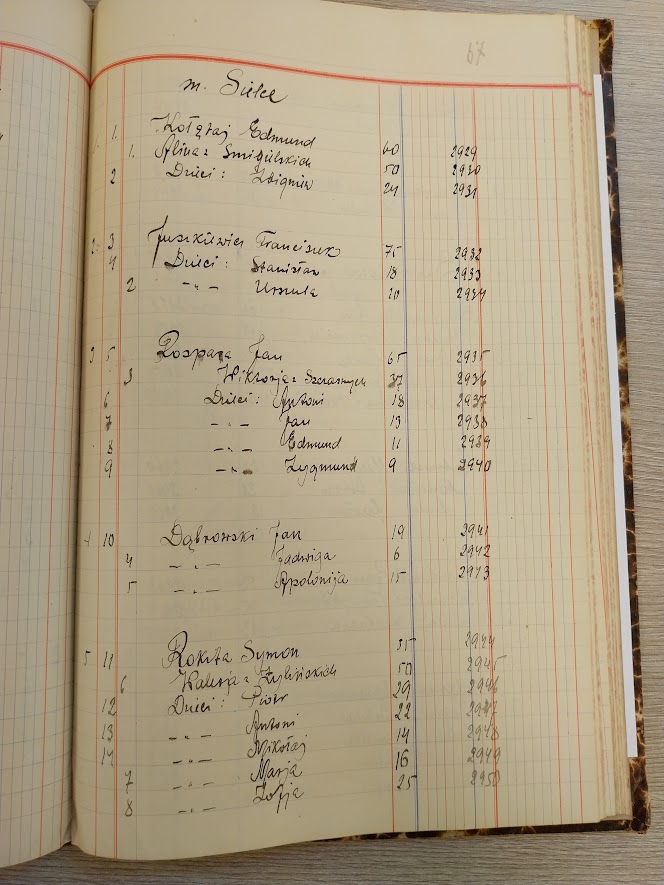 67
m. Sielce
1. 1. Kołątaj Edmund 60 2929
1. Alina z Smigulskich 50 2930
2 Dzieci: Zbigniew 24 2931
2. 3 Juszkiewicz Franciszek 75 2932
4 Dzieci: Stanisław 18 2933
2 -„- Urszula 20 2934
3 5 Rospara Jan 65 2935
3 Wiktorja z Szczasnych 37 2936
6 Dzieci: Antoni 18 2937
7 -„- Jan 13 2938
8 -„- Edmund 11 2939
9 -„- Zygmund 9 2940
4 10 Dąbrowski Jan 19 2941
4 -„- Jadwiga 6 2942
5 -„- Apolonija 15 2943
5 11 Rokita Symon 55 2944
6 Walerja z 50 2945
12 Dzieci: Piotr 29 2946
13 -„- Antoni 22 2947
14 -„- Mikołaj 14 2948
7 -„- Marja 16 2949
8 -„- Zofja 25 2950